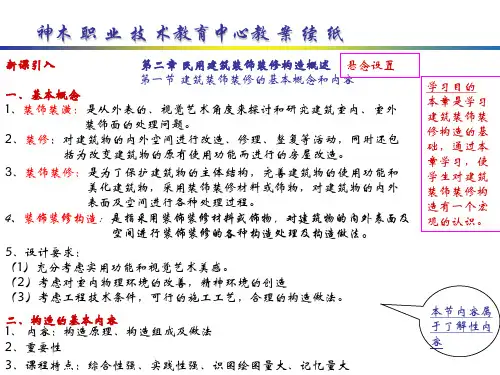 神木 职 业 技 术教育中心教 案 续 纸
新课引入
第二章 民用建筑装饰装修构造概述
悬念设置
第一节 建筑装饰装修的基本概念和内容
一、基本概念
1、装饰装潢：是从外表的、视觉艺术角度来探讨和研究建筑室内、室外
装饰面的处理问题。
2、装修：对建筑物的内外空间进行改造、修理、整复等活动，同时还包
括为改变建筑物的原有使用功能而进行的房屋改造。
3、装饰装修：是为了保护建筑物的主体结构，完善建筑物的使用功能和
美化建筑物，采用装饰装修材料或饰物，对建筑物的内外
表面及空间进行各种处理过程。
4、装饰装修构造：是指采用装饰装修材料或饰物，对建筑物的内外表面及
空间进行装饰装修的各种构造处理及构造做法。
5、设计要求：
(1) 充分考虑实用功能和视觉艺术美感。
(2) 考虑对室内物理环境的改善，精神环境的创造
(3) 考虑工程技术条件，可行的施工工艺，合理的构造做法。
二、构造的基本内容
1、内容：构造原理、构造组成及做法
2、重要性
3、课程特点：综合性强、实践性强、识图绘图量大、记忆量大
学习目的
本章是学习
建筑装饰装
修构造的基
础，通过本
章学习，使
学生对建筑
装饰装修构
造有一个宏
观的认识。
本节内容属
于了解性内
容